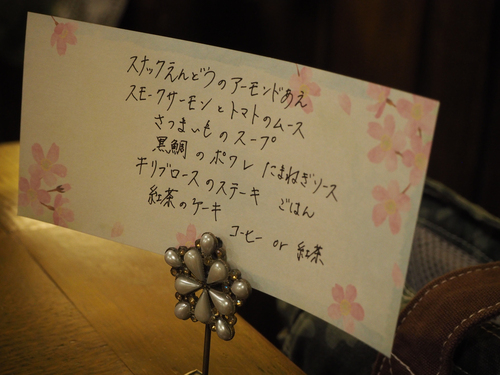 スナックえんどうのアーモンドあえ
スモークサーモンとトマトのムース
さつまいものスープ
黒鯛のポワレ たまねぎソース
キリブロースのステーキ ごはん
紅茶のケーキ
コーヒー or 紅茶